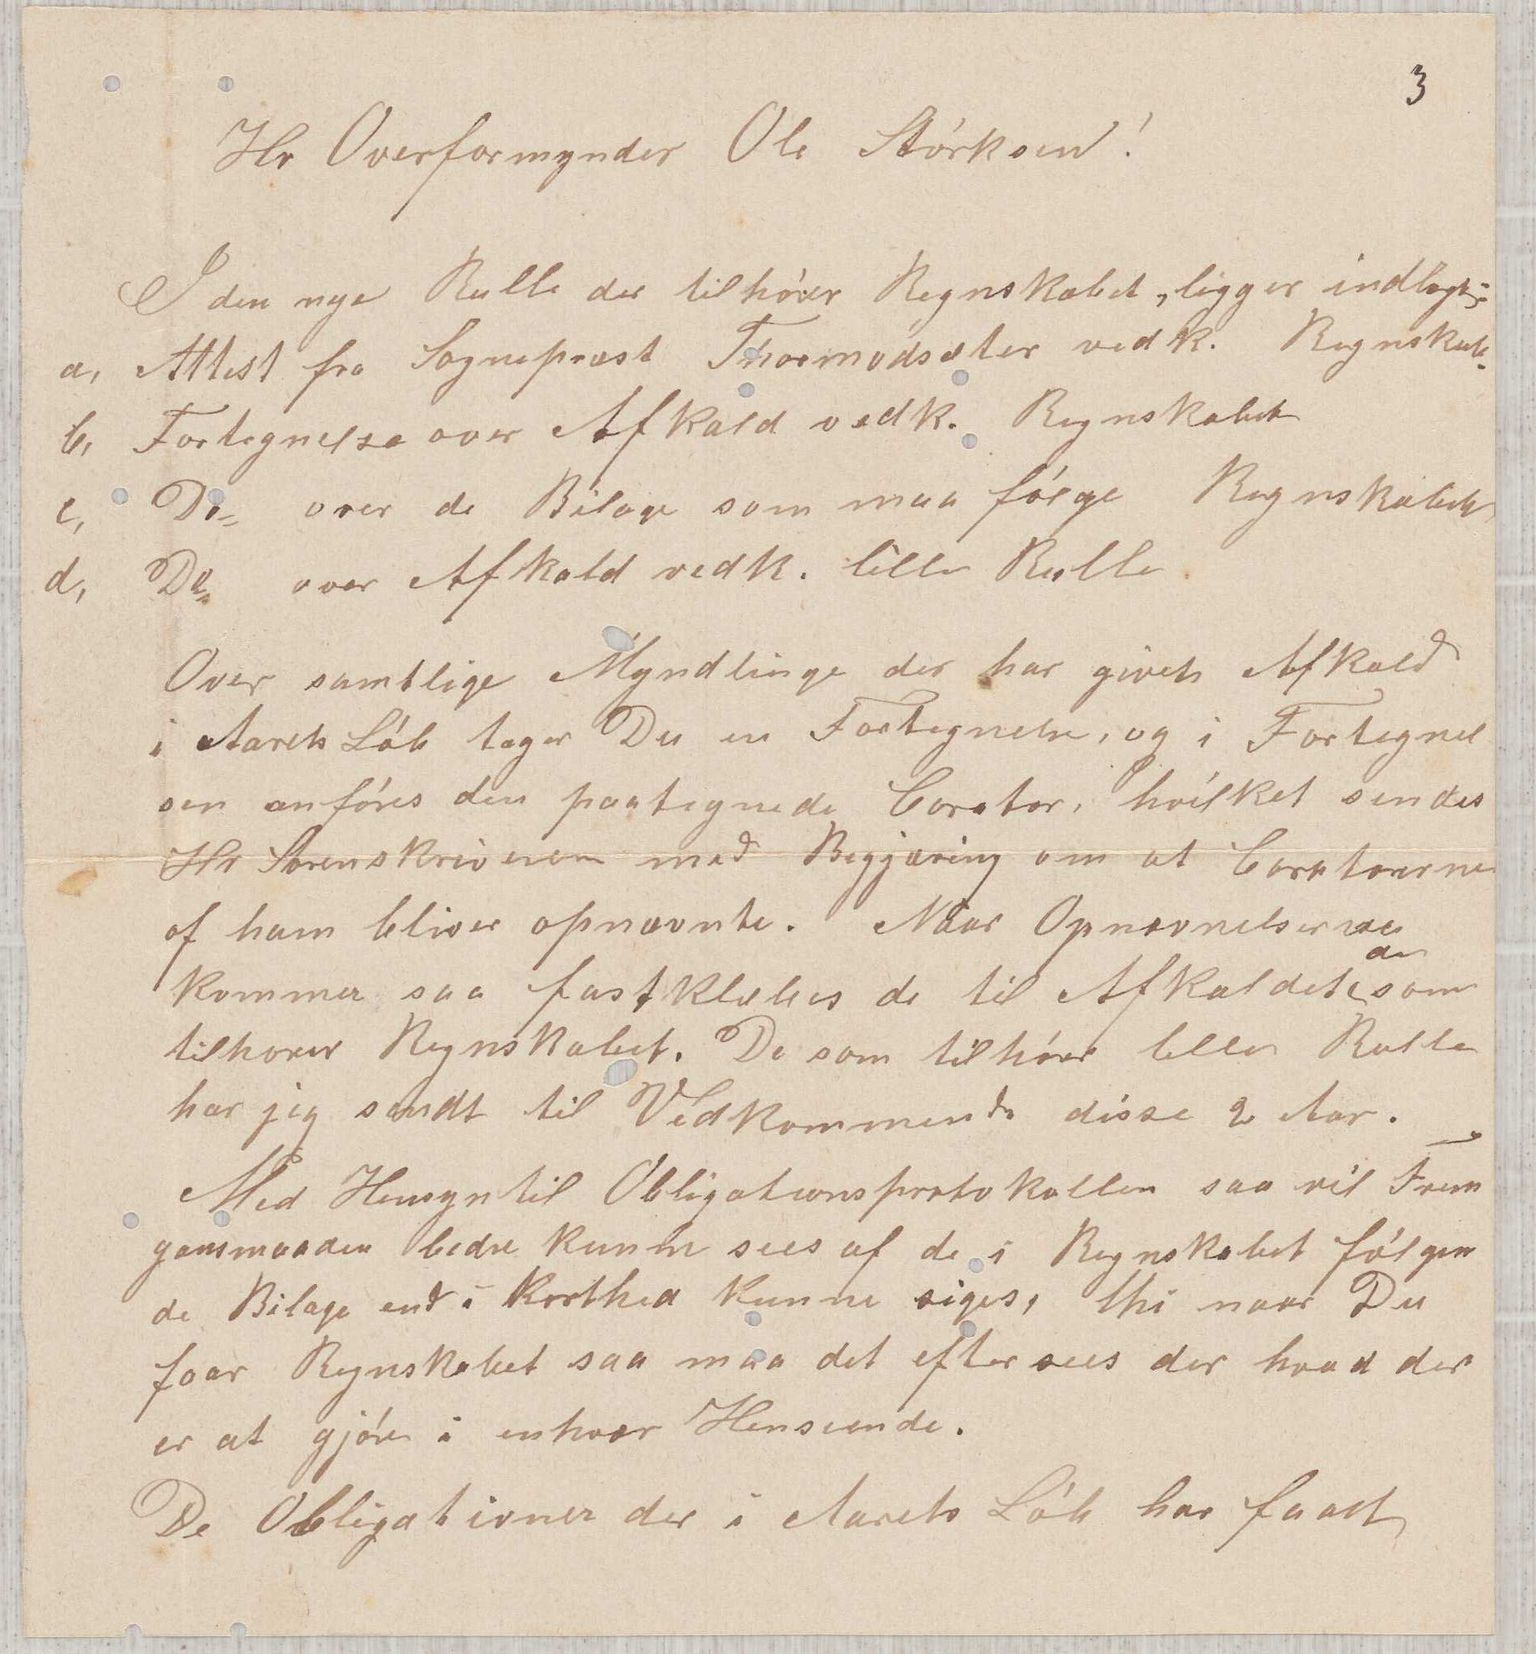 3
Hr Overformynder Ole Störksen!
I den nye Rulle der tilhörer Regnskabet, ligger indlagt:
a, Attest fra Sognepræst Thormodsæter vedk. Regnskab.
b, Fortegnelse over Afkald vedk. Regnskabet
c, Do= over de Bilage som maa fölge Regnskabet
d, Do= over Afkald vedk. lille Rulle
Over samtlige Myndlinge der har givet Afkald
i Aarets Löb tager Du en Fortegnelse, og i Fortegnel
sen anföres den paategnede Curator, hvilket sendes
Hr Sorenskriveren med Begjæring om at Curatorerne
af ham bliver opnævnte. Naar Opnævnelserne
kommer saa fastklæbes de til Afkaldet som
tilhorer Regnskabet. De som tilhörer lille Rulle
har jeg sendt til Vedkommende disse 2 Aar.
Med Hensyn til Obligationsprotokollen saa vil Frem
gansmaaden bedre kunne sees af de i Regnskabet fölgen
de Bilage end i Korthed kunne siges, thi naar Du
faar Regnskabet saa maa det eftersees der hvad der
er at gjöre i enhver Henseende.
De Obligationer der i Aarets Löb har faaet